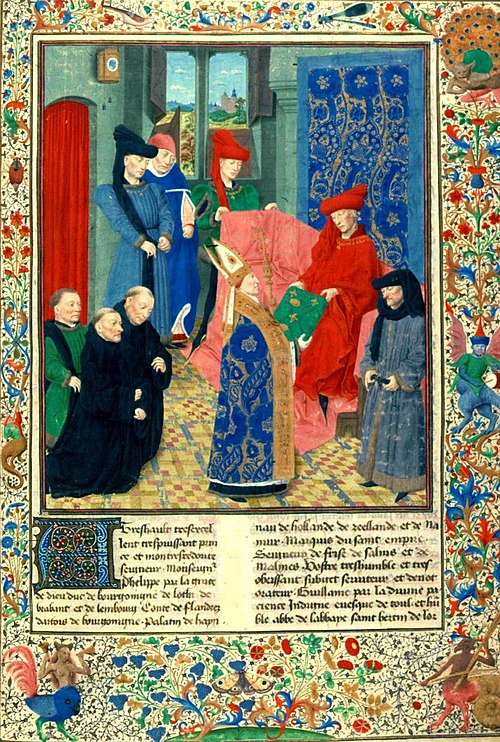 Treshault tresexcel
lent trespuissant prin
ce et mon tresredoubte
seigneur Monseignr
Phelippe par la grace
de dieu duc de bourgoingne de lothr de
brabant et de lembourg Conte de flandres
dartois de bourgoingne Palatin de hayn
nau de hollande de zeellande et de Na
mur Marquis du saint empire
Seigneur de frise de salins et de
Malines Vostre treshumble et tres
obeissant subiect serviteur et devot
orateur Guillame par la divine pa
cience Indigne evesque de toul et hu
ble abbe de labbaye saint bertin de loz